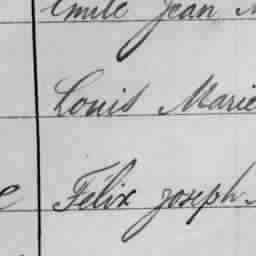 Emile Jean
Louis Marie
Félix Joseph